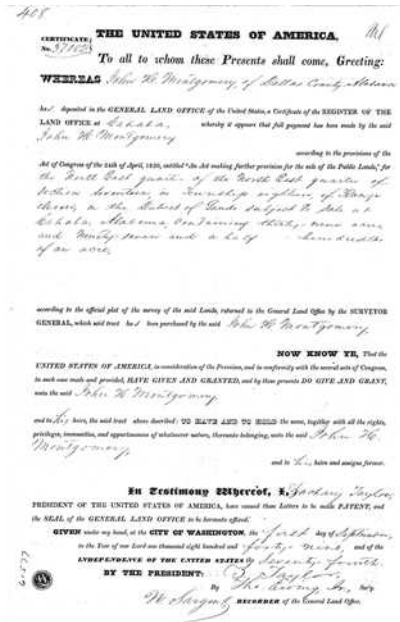 408
THE UNITED STATES OF AMERICA,
CERTIFICATE
No.
To all to whom these Presents shall come, Greeting:
WHEREAS John H. Montgomery, of Dallas County, Alabama
ha d deposited in the GENERAL LAND OFFICE of the United States, a Certificate of the REGISTER OF THE
LAND OFFICE at Cahaba, whereby it appears that full payment has been made by the said
John H. Montgomery
according to the provisions of the
Act of Congress of the 24th of April, 1820, entitled "An Act making further provision for the sale of the Public Lands," for
the North East quarter of the North East quarter of
Section Seventeen, in Township eighteen, of Range
in the District of Lands subject to sale at
Cahaba, Alabama, Containing thirty nine acres
and Ninety seven and a half hundredths
of an acre,
according to the official plat of the survey of the said Lands, returned to the General Land Office by the SURVEYOR
GENERAL, which said tract has been purchased by the said John H. Montgomery,
NOW KNOW YE, That the
UNITED STATES OF AMERICA, in consideration of the Premises, and in conformity with the several acts of Congress,
in such case made and provided, HAVE GIVEN AND GRANTED, and by these presents DO GIVE AND GRANT,
unto the said John H. Montgomery,
and to his heirs, the said tract above described: TO HAVE AND TO HOLD the same, together with all the rights,
privileges, immunities, and appurtenances of whatsoever nature, thereunto belonging, unto the said John H.
Montgomery,
and to his heirs and assigns forever.
In Testimony Whereof, I, Zachary Taylor,
PRESIDENT OF THE UNITED STATES OF AMERICA, have caused these Letters to be made PATENT, and
the SEAL of the GENERAL LAND OFFICE to be hereunto affixed.
GIVEN under my hand, at the CITY OF WASHINGTON, the first day of September,
in the Year of our Lord one thousand eight hundred and forty nine, and of the
INDEPENDENCE OF THE UNITED STATES the Seventy fourth.
BY THE PRESIDENT: Z. Taylor,
By Tho. Ewing Jr. Sec'y.
N. Sargent RECORDER of the General Land Office.